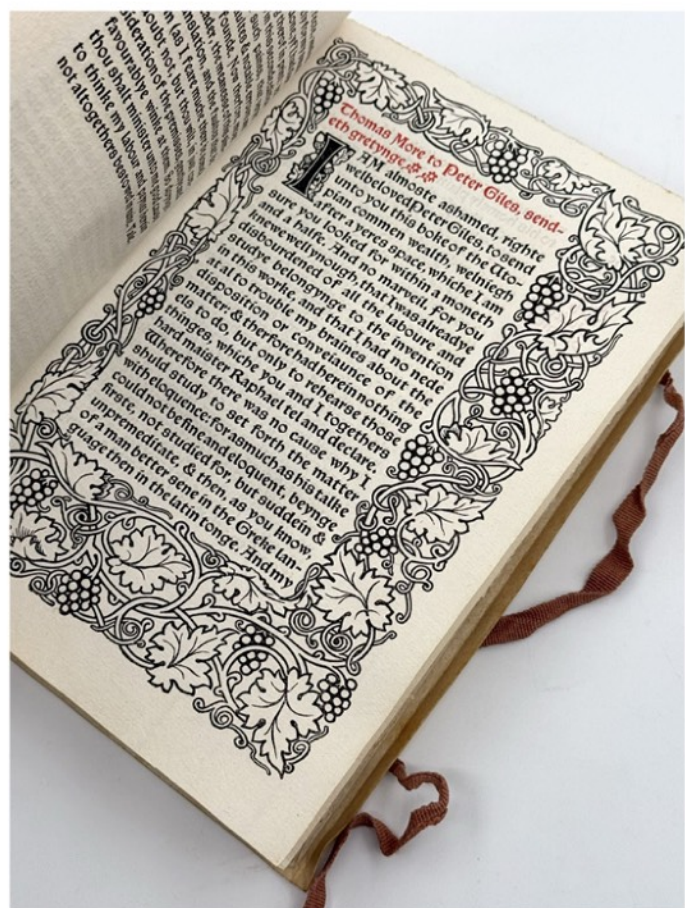 sideration of the premisses
(as I feare much
doubt not, but thou wilt
favourablye winke at
thou shalt minister unto
to thinke my labour and
not altogethers bestowed
Thomas More to Peter Giles, send-
eth gretynge
I AM almoste ashamed, righte
welbeloved Peter Giles, to send
unto you this boke of the Uto-
pian commen wealth, welniegh
after a yeres space, whiche I am
sure you looked for within a moneth
and a halfe. And no marveil. For you
knewe well ynough, that I was alreadye
disbourdened of all the laboure and
studye belongynge to the invention
in this worke, and that I had no nede
at al to trouble my braines about the
disposition or conveiaunce of the
matter: & therfore had herein nothing
els to do, but only to rehearse those
thinges, whiche you and I togethers
hard maister Raphael tel and declare.
Wherefore there was no cause why I
shuld study to set forth the matter
with eloquence: forasmuch as his talke
could not be fine and eloquent, beynge
firste, not studied for, but suddein &
unpremeditate, & then, as you know,
of a man better sene in the Greke lan-
guage then in the latin tonge. And my